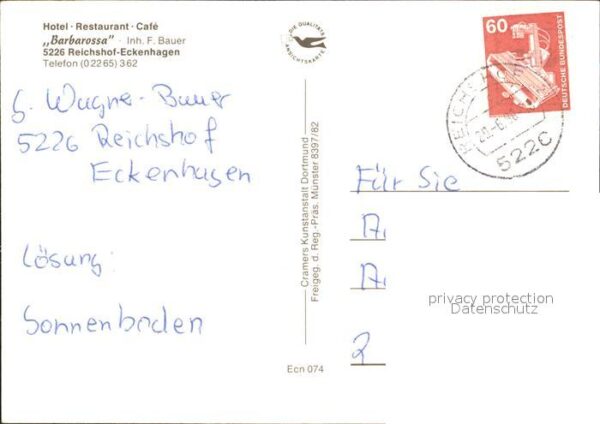 Hotel · Restaurant · Café
„Barbarossa" · Inh. F. Bauer
5226 Reichshof-Eckenhagen
Telefon (02265) 362
DIE QUALITÄTS
ANSICHTSKARTE
60
DEUTSCHE BUNDESPOST
5226
G. Wagner-Bauer
5226 Reichshof
Eckenhagen
Lösung:
Sonnenboden
Cramers Kunstanstalt Dortmund
Freigeg. d. Reg.-Präs. Münster 8397/82
Ecn 074
Für Sie
A.
A.
2
privacy protection
Datenschutz